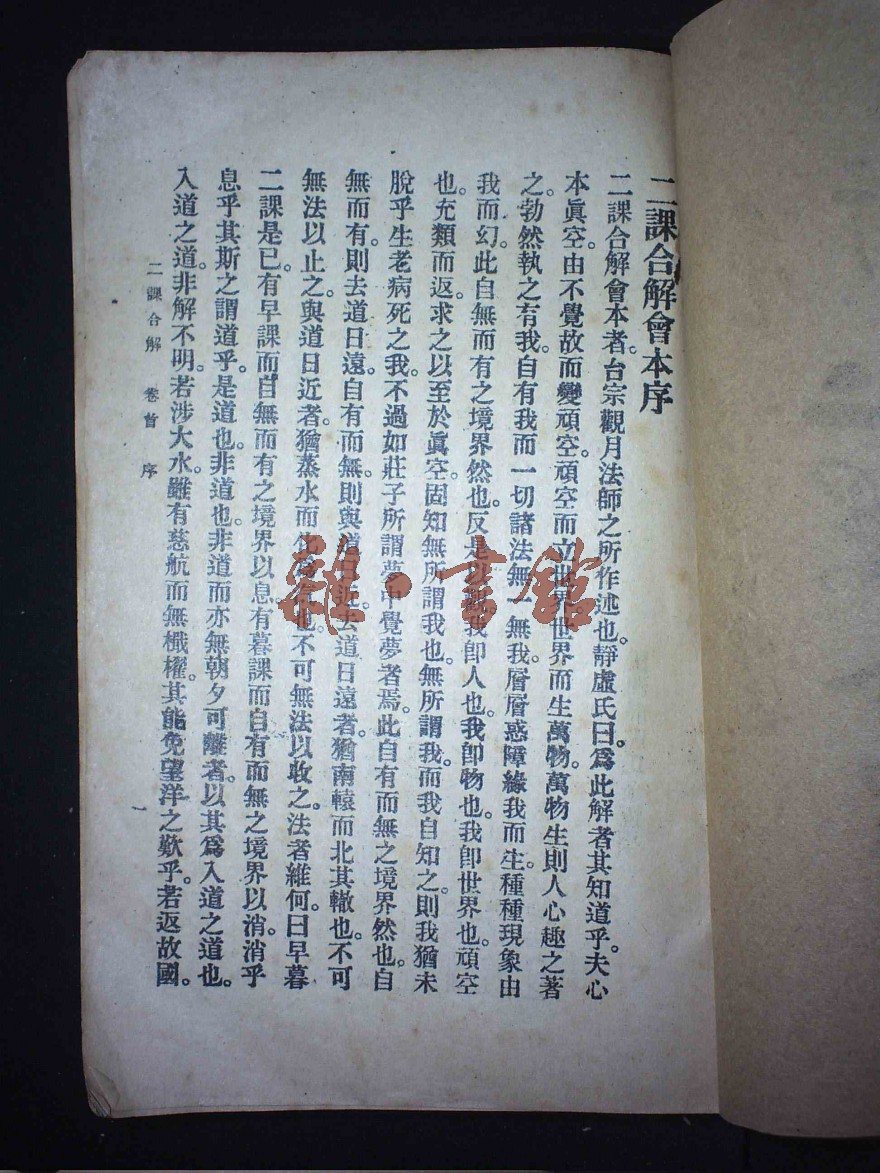 二課合解會本序
二課合解會本者。台宗觀月法師之所作述也。靜虛氏曰。爲此解者其知道乎。夫心
本眞空。由不覺故而變頑空。頑空而立世界。世界而生萬物。萬物生則人心趣之著
之。勃然執之有我。自有我而一切諸法無一無我。層層惑障緣我而生。種種現象由
我而幻。此自無而有之境界然也。反是以觀我卽人也。我卽物也。我卽世界也。頑空
也。充類而返。求之以至於眞空。固知無所謂我也。無所謂我。而我自知之。則我猶未
脫乎生老病死之我。不過如莊子所謂夢中覺夢者焉。此自有而無之境界然也。自
無而有。則去道日遠。自有而無。則與道日近。去道日遠者。猶南轅而北其轍也。不可
無法以止之。與道日近者。猶蒸水而化也。不可無法以收之。法者維何。曰早暮
二課是已。有早課而自無而有之境界以息。有暮課而自有而無之境界以消。消乎
息乎。其斯之謂道乎。是道也。非道也。非道而亦無朝夕可離者。以其爲入道之道也。
入道之道。非解不明。若涉大水。雖有慈航而無檝櫂。其能免望洋之歎乎。若返故國。
二課合解 卷首 序
一
雜·書館